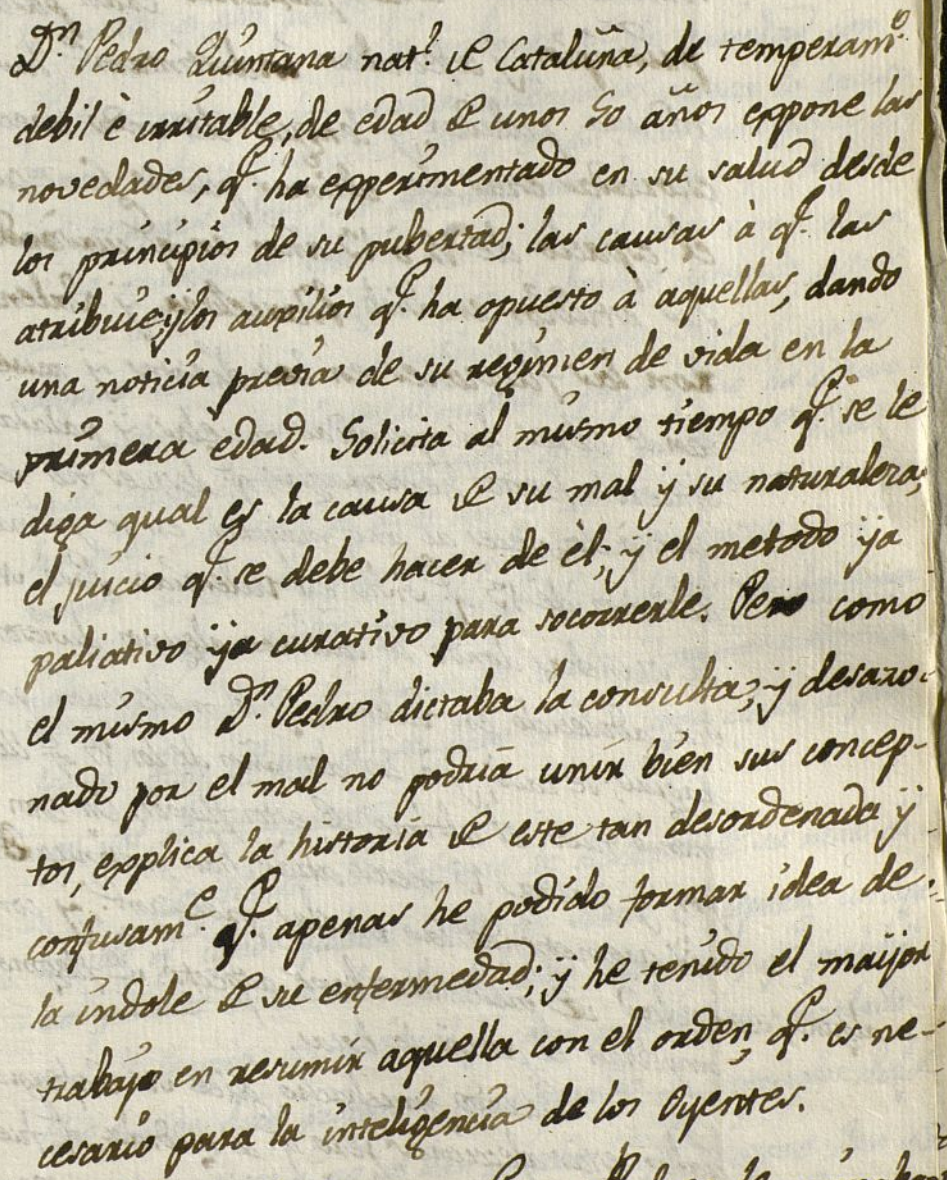 Dⁿ. Pedro Quintana natˡ. de Cataluña, de temperamᵗᵒ.
debil è irritable, de edad de unos 50 años expone las
novedades, qᵉ. ha experimentado en su salud desde
los principios de su pubertad; las causas à qᵉ. las
atribuie; ÿ los auxilios qᵉ. ha opuesto à aquellas, dando
una noticia previa de su regimen de vida en la
primera edad. Solicita al mismo tiempo qᵉ. se le
diga qual es la causa de su mal ÿ su naturaleza;
el juicio qᵉ. se debe hacer de èl; ÿ el metodo ÿa
paliativo ÿa curativo para socorrerle. Pero como
el mismo Dⁿ. Pedro dictaba la consulta, ÿ desazo-
nado por el mal no podria unir bien sus concep-
tos, explica la historia de este tan desordenada ÿ
confusamᵉ. qᵉ. apenas he podido formar idea de
la indole de su enfermedad; ÿ he tenido el maÿor
trabajo en resumir aquella con el orden, qᵉ. es ne-
cesario para la inteligencia de los Oÿentes.